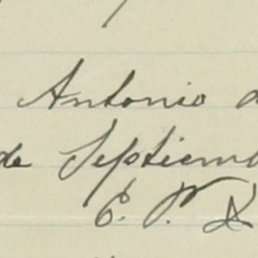 Antonio d
de Septiemb
E. P. D